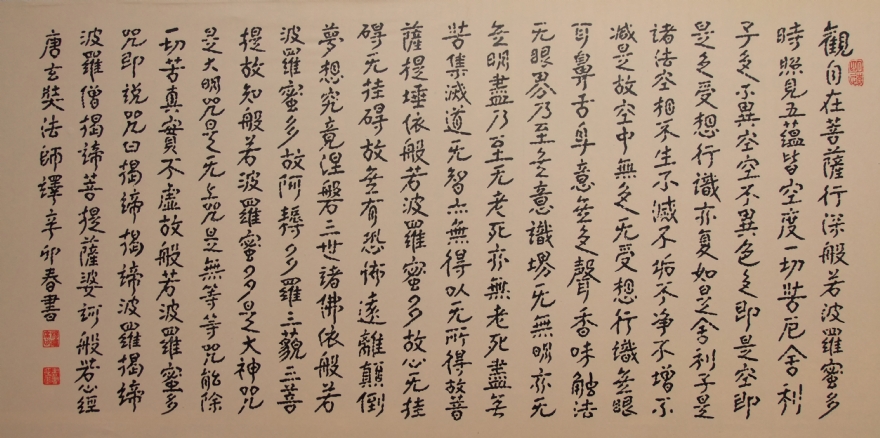 觀自在菩薩行深般若波羅蜜多
時照見五蘊皆空度一切苦厄舍利
子色不異空空不異色色即是空即
是色受想行識亦复如是舍利子是
諸法空相不生不滅不垢不净不增不
减是故空中無色无受想行識無眼
耳鼻舌身意無色聲香味觸法
无眼界乃至無意識堺无無明亦无
無明盡乃至无老死亦無老死盡無
苦集滅道无智亦無得以无所得故菩
薩提埵依般若波羅蜜多故心无挂
碍无挂碍故無有恐怖遠離顛倒
夢想究竟涅槃三世諸佛依般若
波羅蜜多故阿耨多羅三藐三菩
提故知般若波羅蜜多是大神咒
是大明咒是无上咒是無等等咒能除
一切苦真實不虛故般若波羅蜜多
咒即說咒曰揭諦揭諦波羅揭諦
波羅僧揭諦菩提薩婆訶般若心經
唐玄奘法師譯辛卯春書